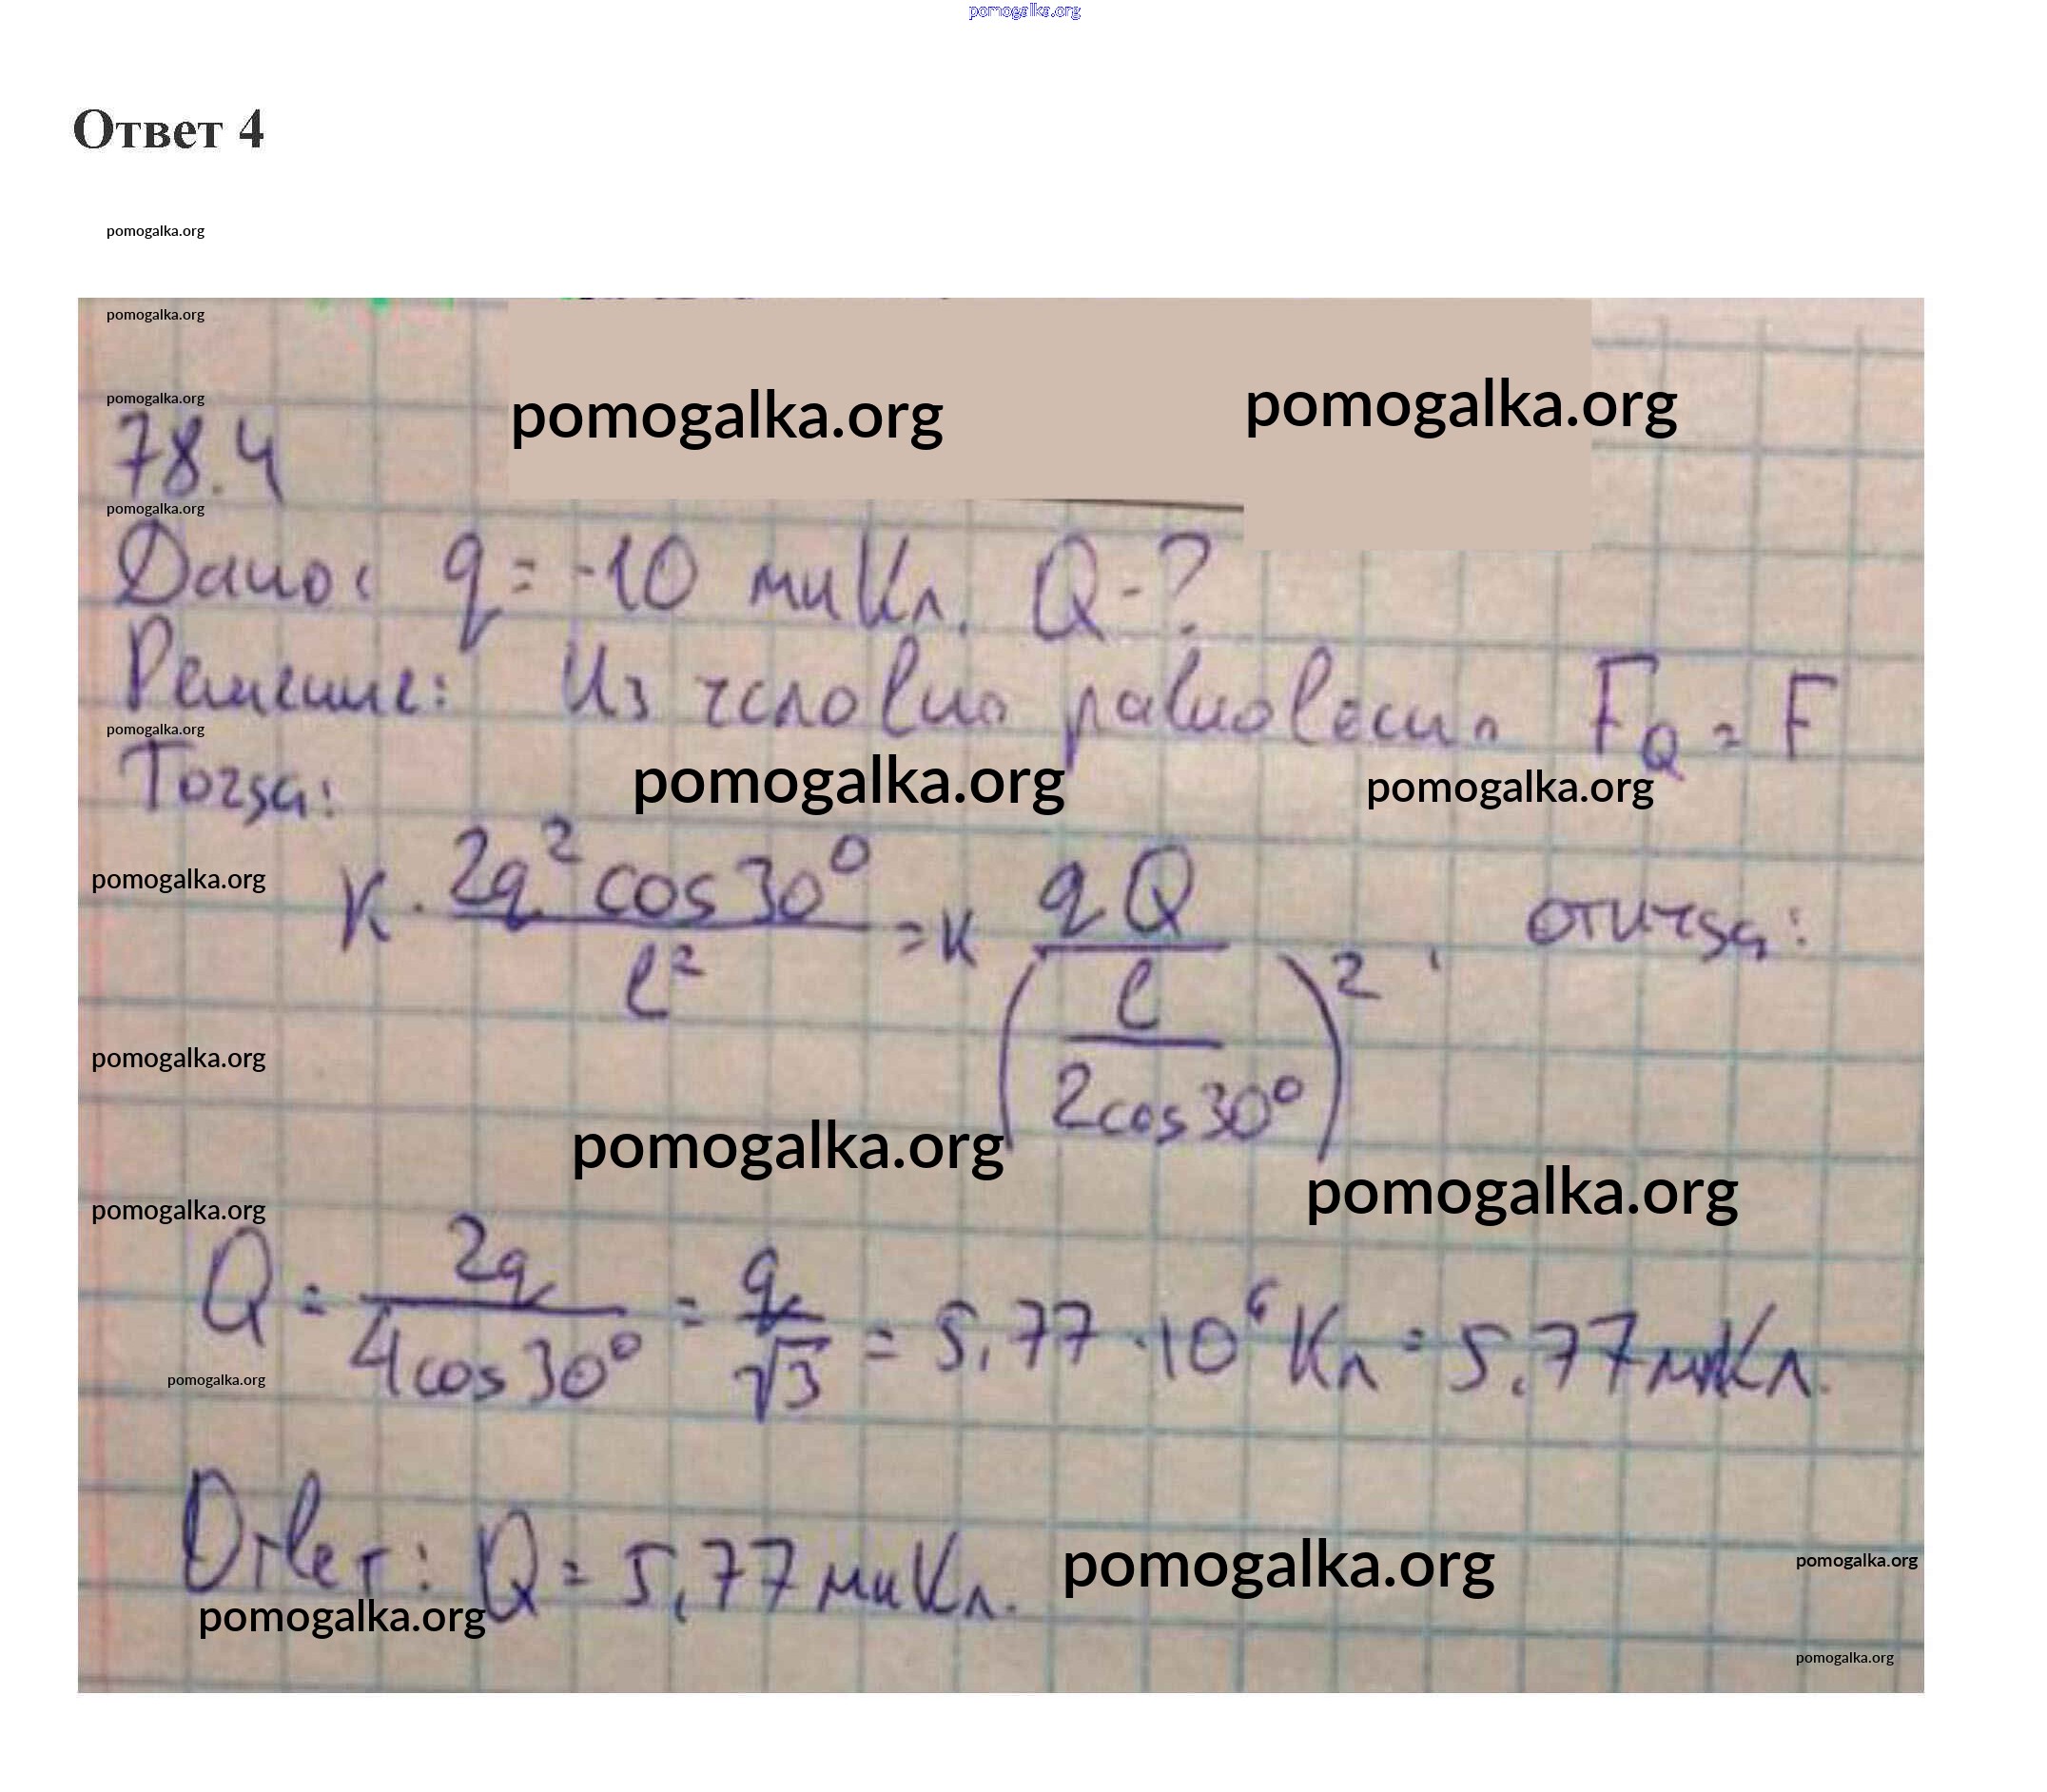 pomogalka.org
Ответ 4
pomogalka.org
pomogalka.org
pomogalka.org
pomogalka.org pomogalka.org
78.4
pomogalka.org
Дано: q = -10 мкКл. Q - ?
Решение: Из условия равновесия F_Q = F
pomogalka.org
Тогда:
pomogalka.org pomogalka.org
pomogalka.org
к · 2q² cos 30° / l² = к qQ / (l / 2cos 30°)² , откуда:
pomogalka.org
pomogalka.org
pomogalka.org
pomogalka.org
Q = 2q / 4cos 30° = q / √3 = 5,77 · 10⁶ Кл = 5,77 мкКл.
pomogalka.org
Ответ: Q = 5,77 мкКл.
pomogalka.org pomogalka.org
pomogalka.org
pomogalka.org